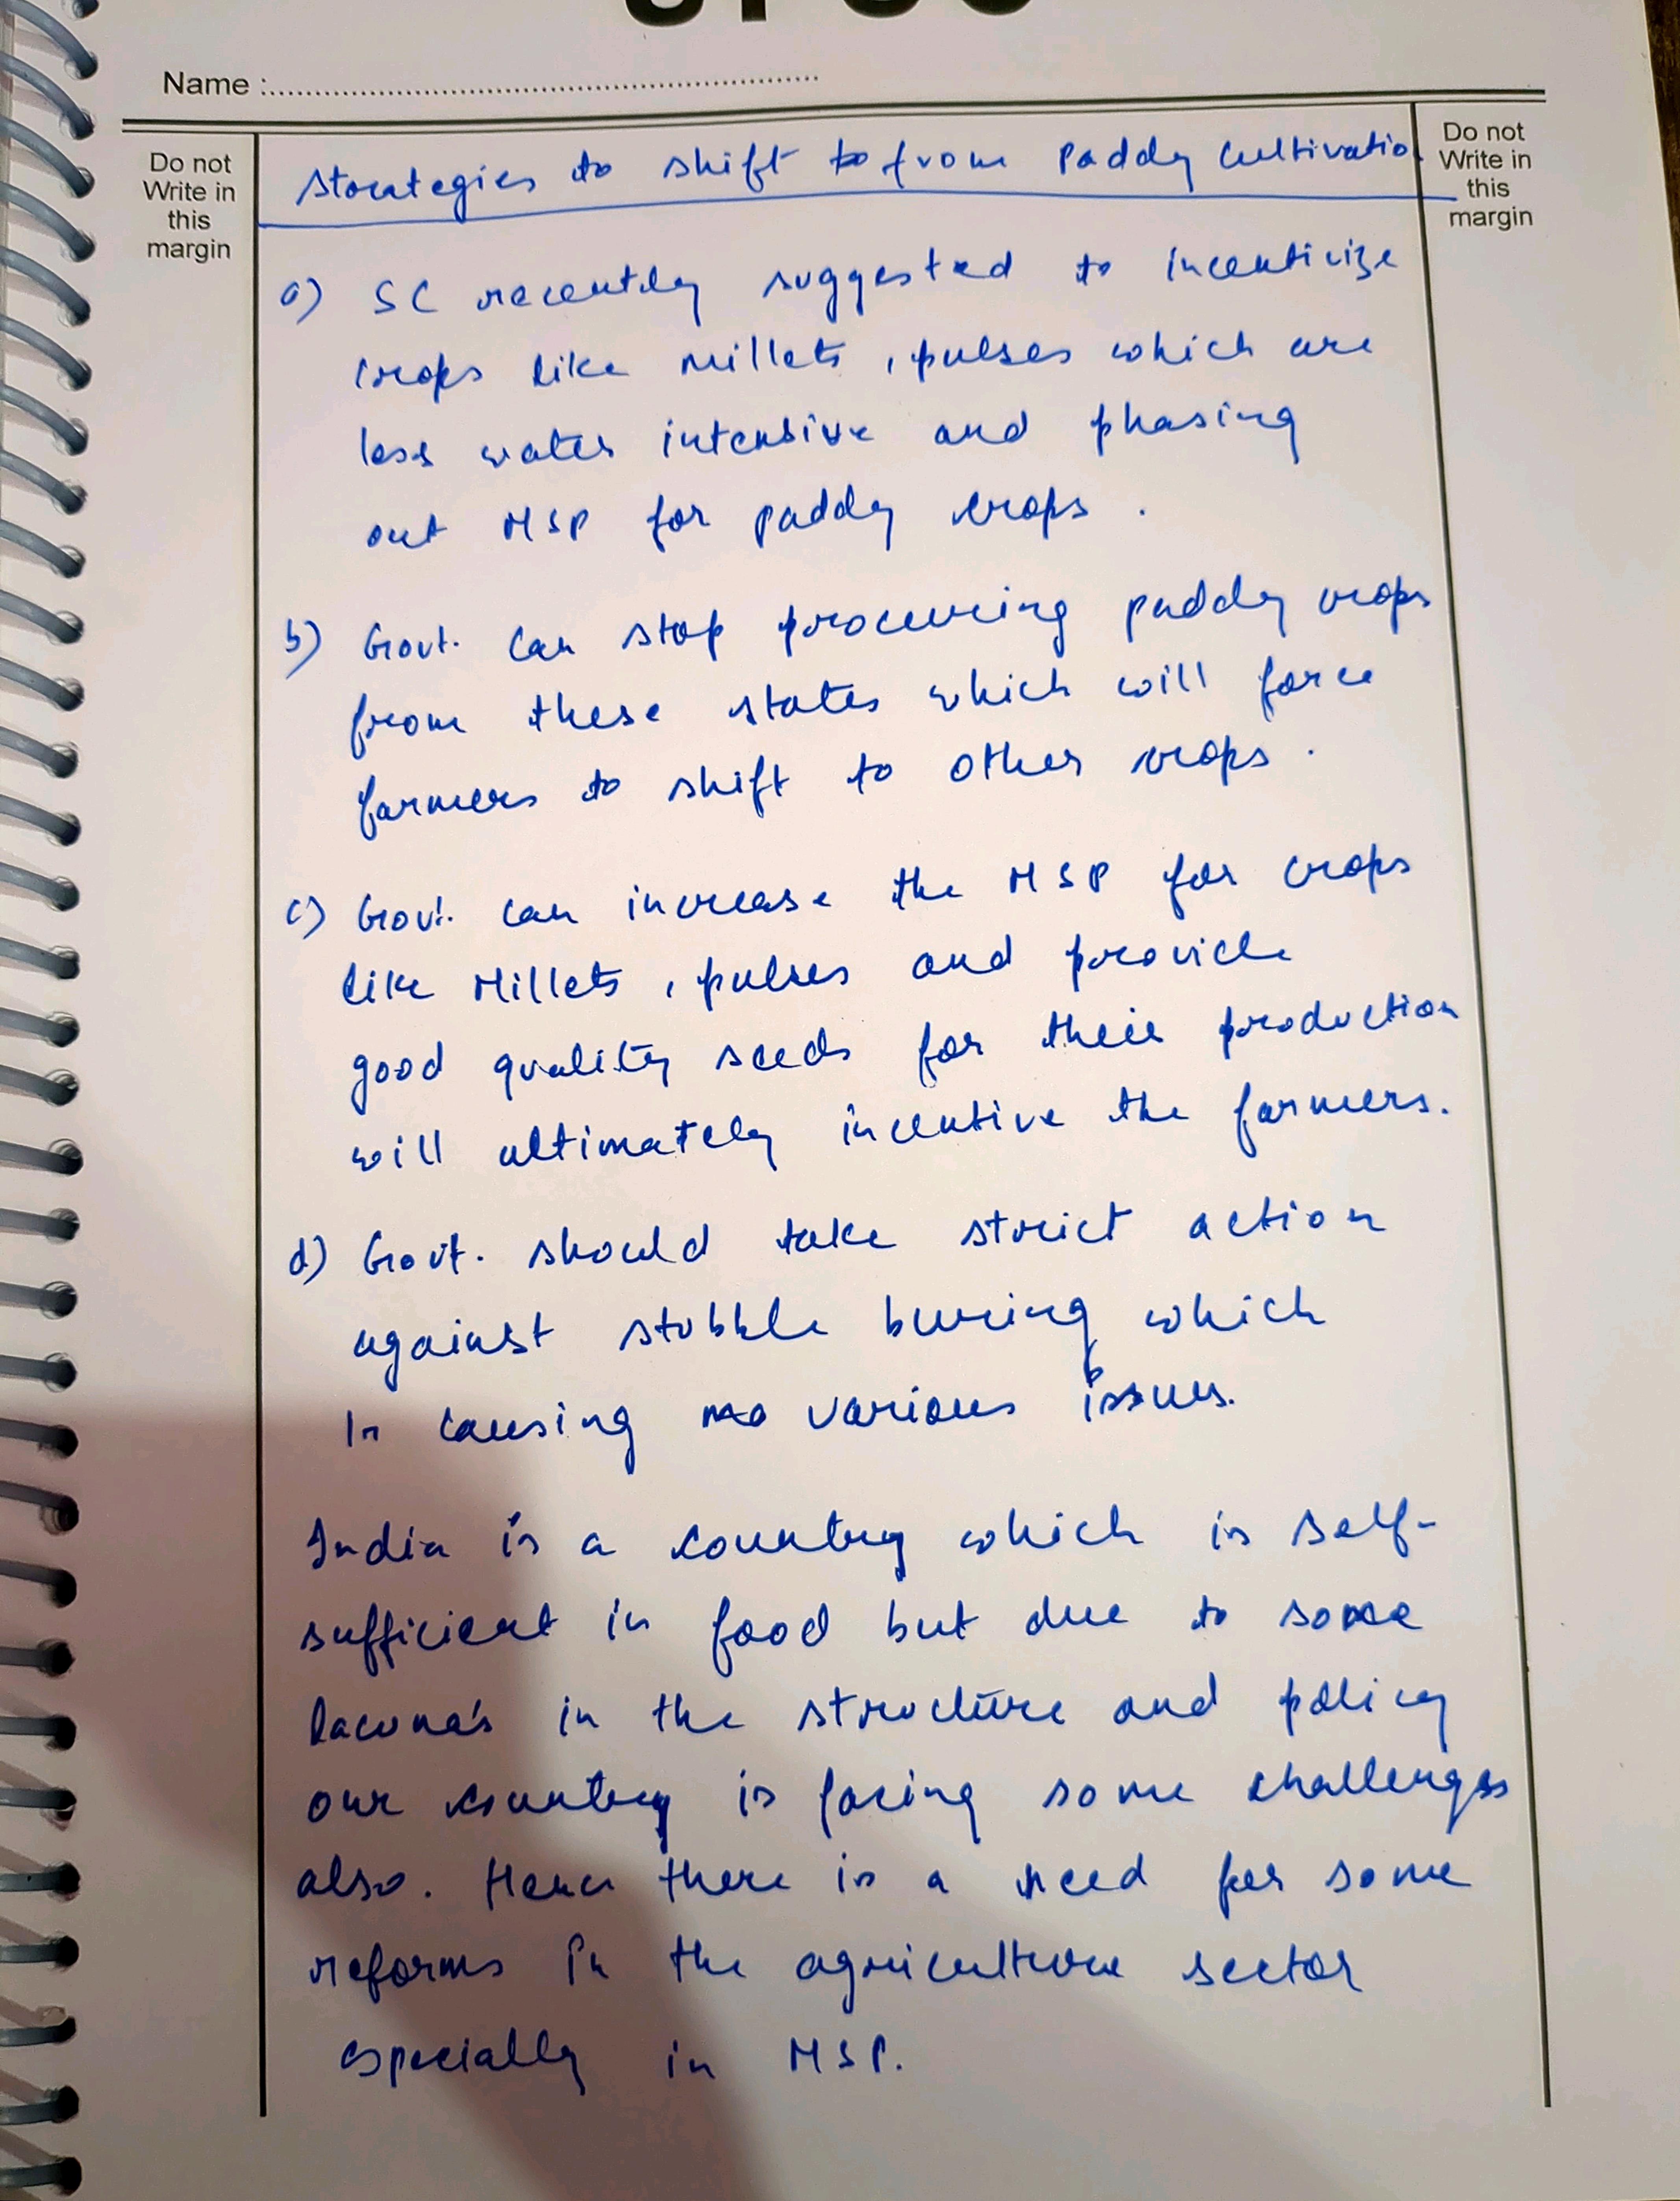 UPSC
Name :
Do not
Write in
this
margin
Do not
Write in
this
margin
Strategies to shift to from Paddy Cultivatio
a) SC recently suggested to incentivize
crops like Millets, pulses which are
less water intensive and phasing
out MSP for paddy crops.
b) Govt. can stop procuring paddy crops
from these states which will force
farmers to shift to other crops.
c) Govt. can increase the MSP for crops
like Millets, pulses and provide
good quality seeds for their production
will ultimately incentive the farmers.
d) Govt. should take strict action
against stubble buring which
is causing mo various issues.
India is a country which is self-
sufficient in food but due to some
Lacuna's in the structure and policy
our country is facing some challenges
also. Hence there is a need for some
reforms in the agriculture sector
especially in MSP.